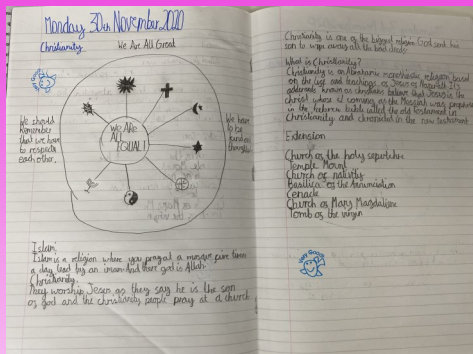 Monday 30th November 2020
Christianity
We Are All Great
We should
Remember
that we have
to respects
each other.
We ARe
ALL
EQUAL!
We have
to be
kind and
Islam:
Islam is a religion where you pray at a mosque five times
a day lead by an imam And there god is Allah.
Christianity.
They worship Jesus as they say he is the son
of god and the christianity people pray at a church
Christianity is one of the biggest religion God sent his
son to wipe away all the bad deeds
What is Christianity?
Christianity is an Abrahamic monotheistic religion based
on the life and teachings of Jesus of Nazareth It's
known as christians believe that Jesus is the
christ whose coming as the Messiah was prophesied
in the hebrew bible called the old testament in
Christianity and chronicled in the new testament
Extension
Church of the holy
Temple Mount
Church of nativity
Basilica of the Annunciation
Cenacle
Church of Mary Magdalene
Tomb of the virgin
Very Good